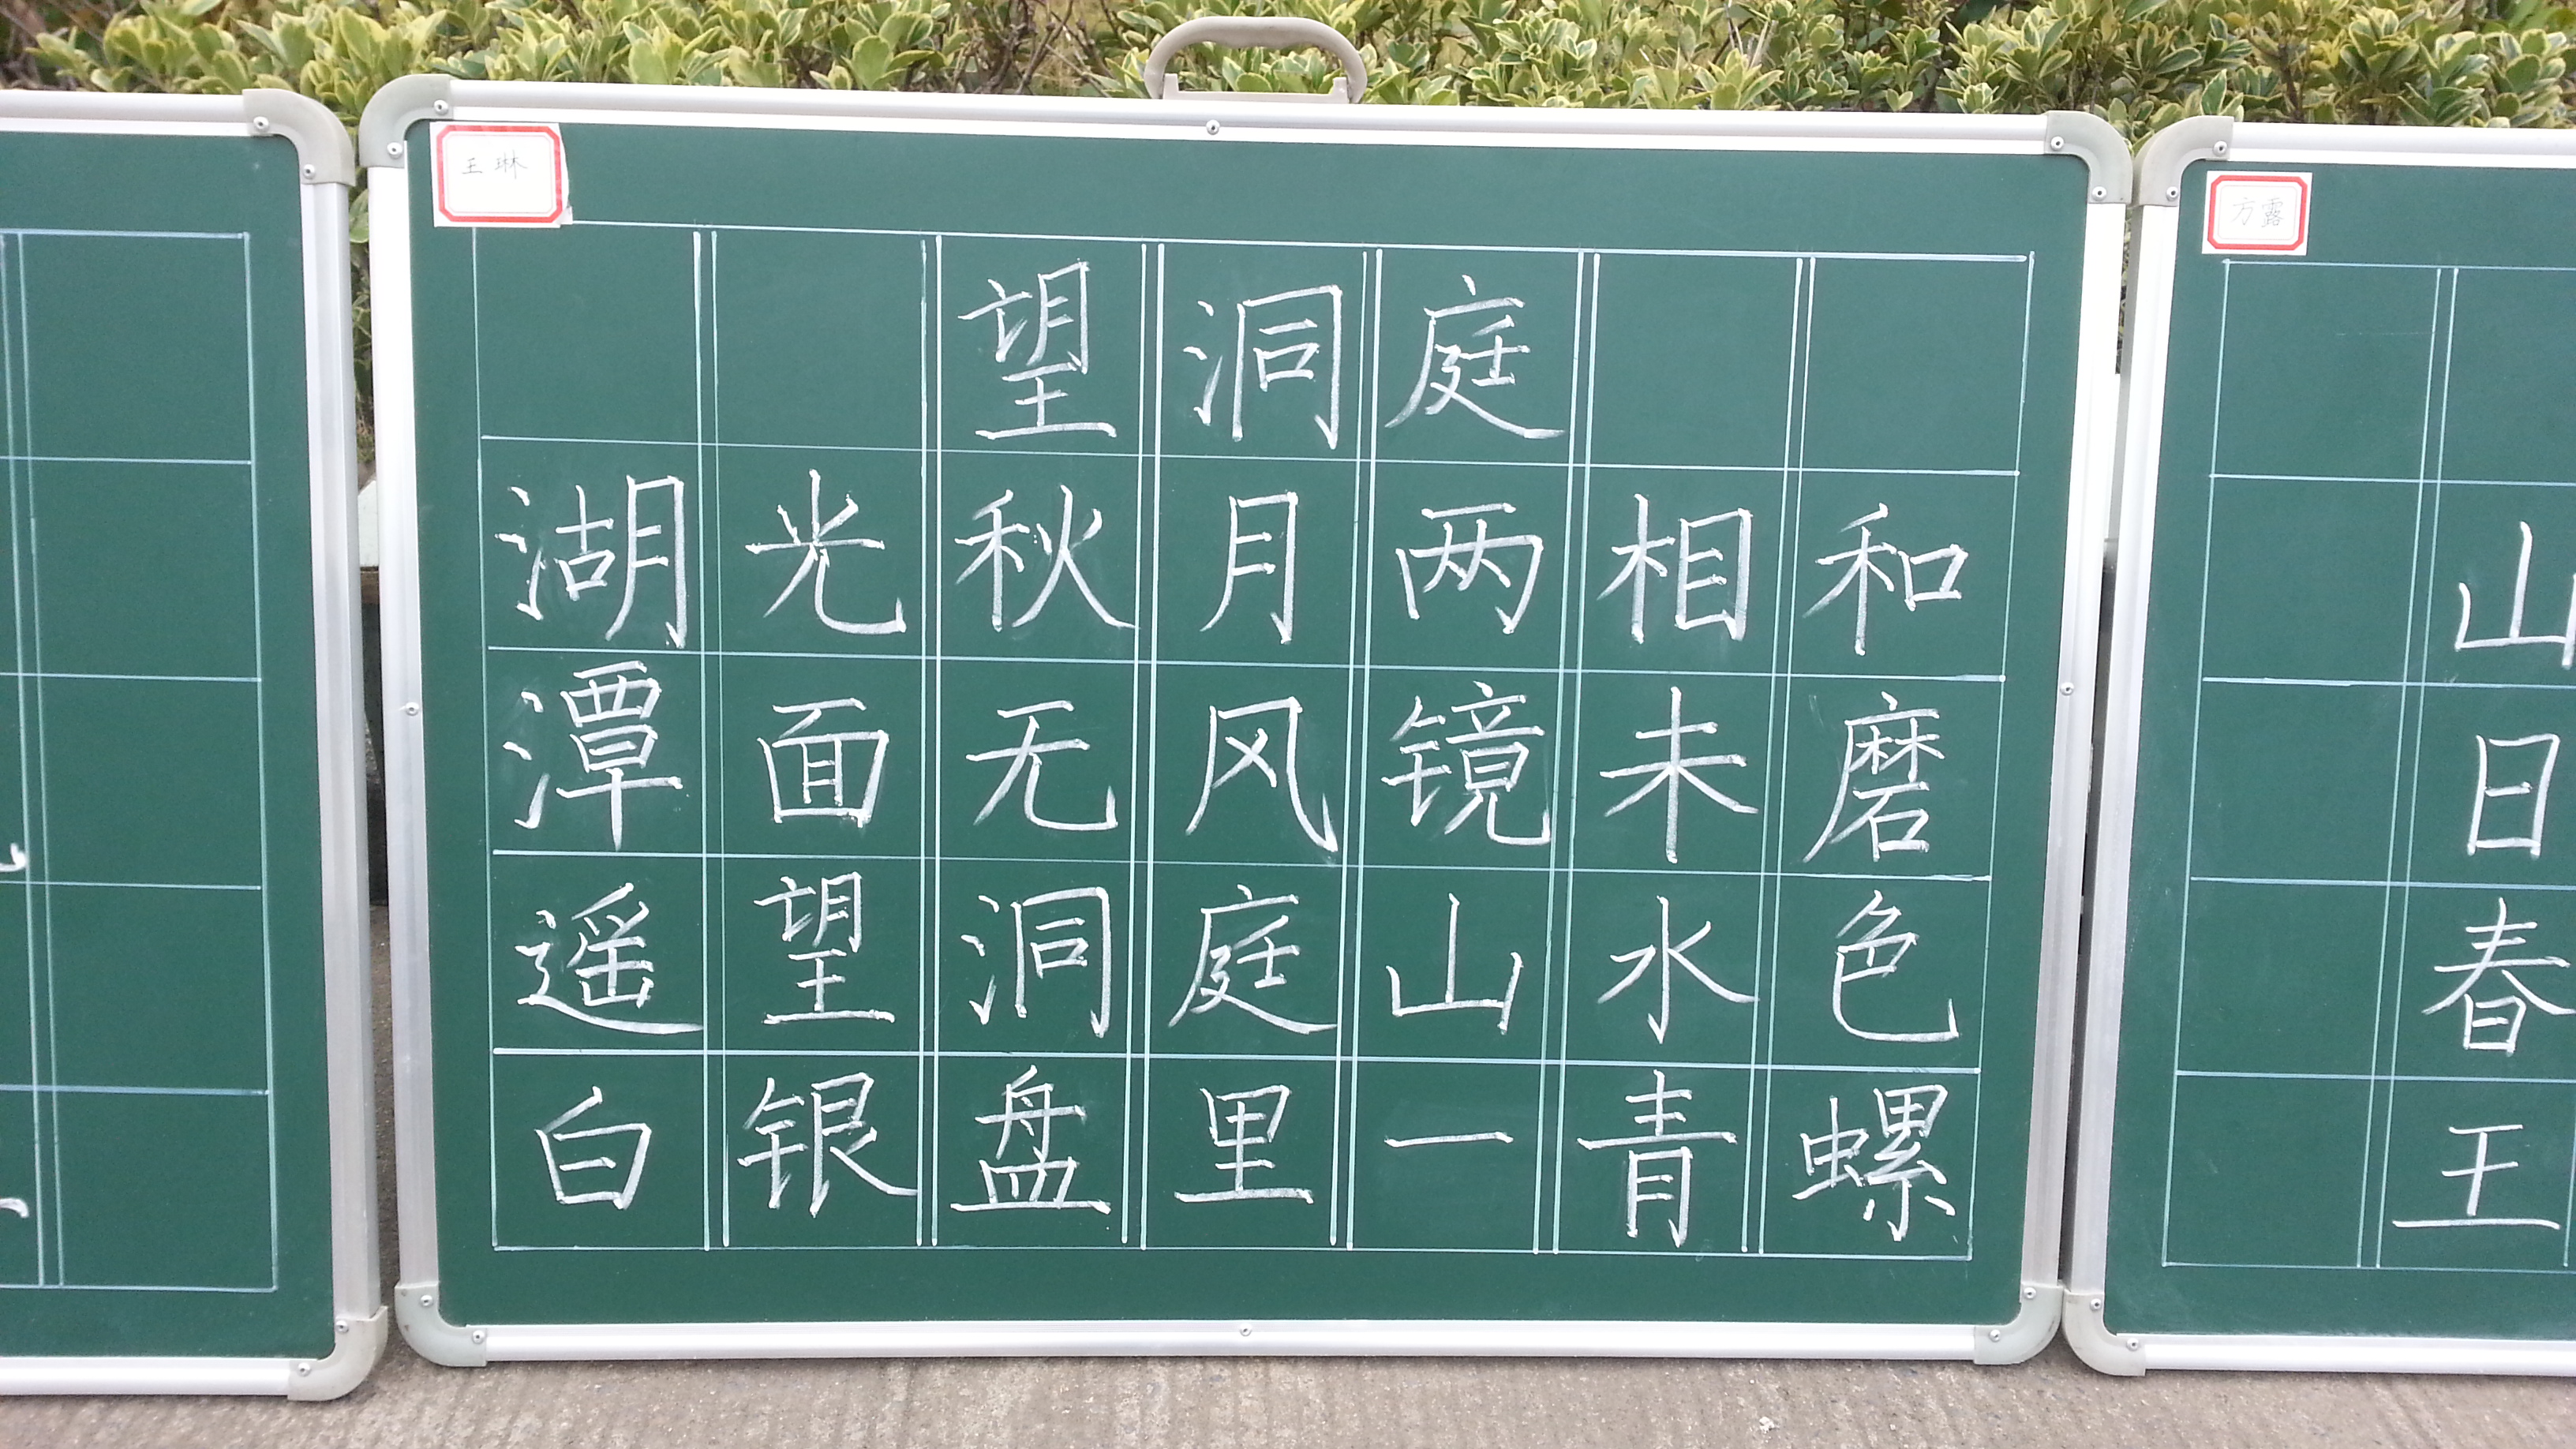 王琳
望洞庭
湖光秋月两相和
潭面无风镜未磨
遥望洞庭山水色
白银盘里一青螺
方露
山
日
春
王